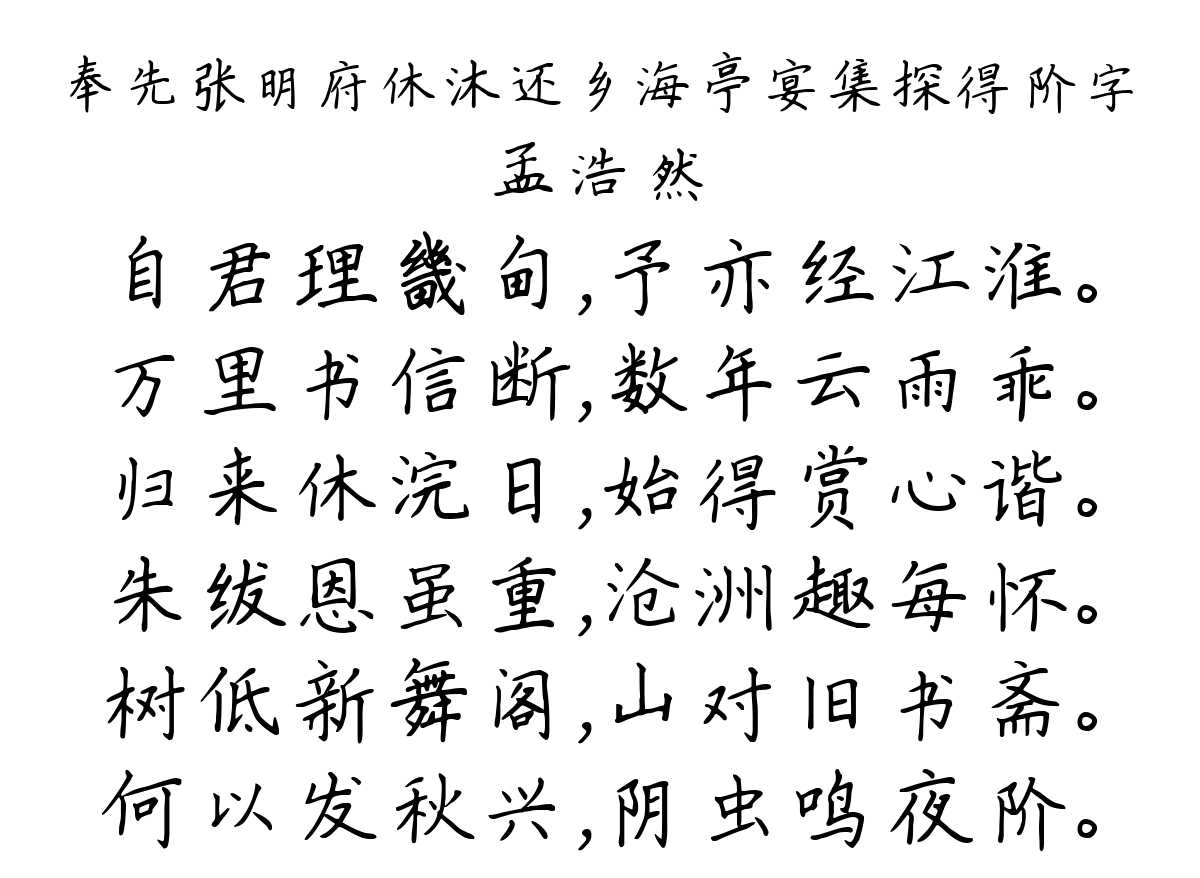 奉先张明府休沐还乡海亭宴集探得阶字
孟浩然
自君理畿甸,予亦经江淮。
万里书信断,数年云雨乖。
归来休浣日,始得赏心谐。
朱绂恩虽重,沧洲趣每怀。
树低新舞阁,山对旧书斋。
何以发秋兴,阴虫鸣夜阶。